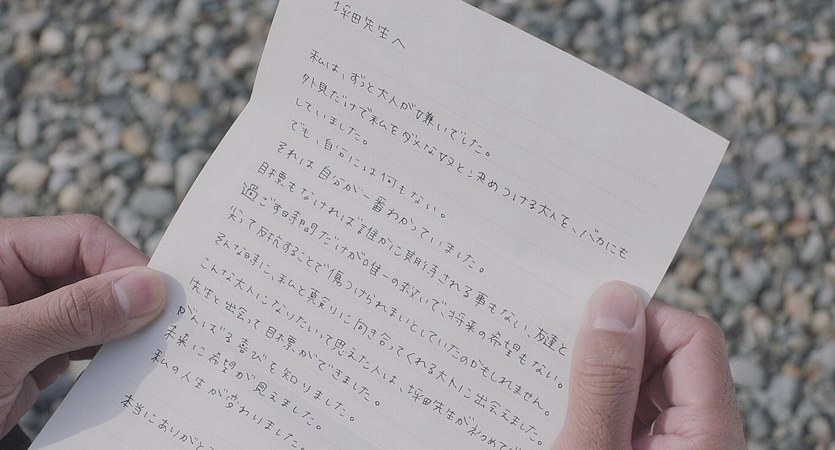 坪田先生へ
私は、ずっと大人が嫌いでした。
外見だけで私をダメな奴と決めつける大人を、バカにも
していました。
でも、自分には何もない。
それは自分が一番わかっていました。
目標もなければ誰かに期待される事もない、友達と
過ごす時間だけが唯一の救いで、将来の希望もない。
尖って反抗することで傷つけられまいとしていたのかもしれません。
そんな時に、ちゃんと真剣に向き合ってくれる大人に出会えました。
こんな大人になりたいって思えた人は、坪田先生が初めてで
先生と出会って目標ができました。
がんばる喜びを知りました。
未来に希望が見えました。
私の人生が変わりました。
本当にありがと